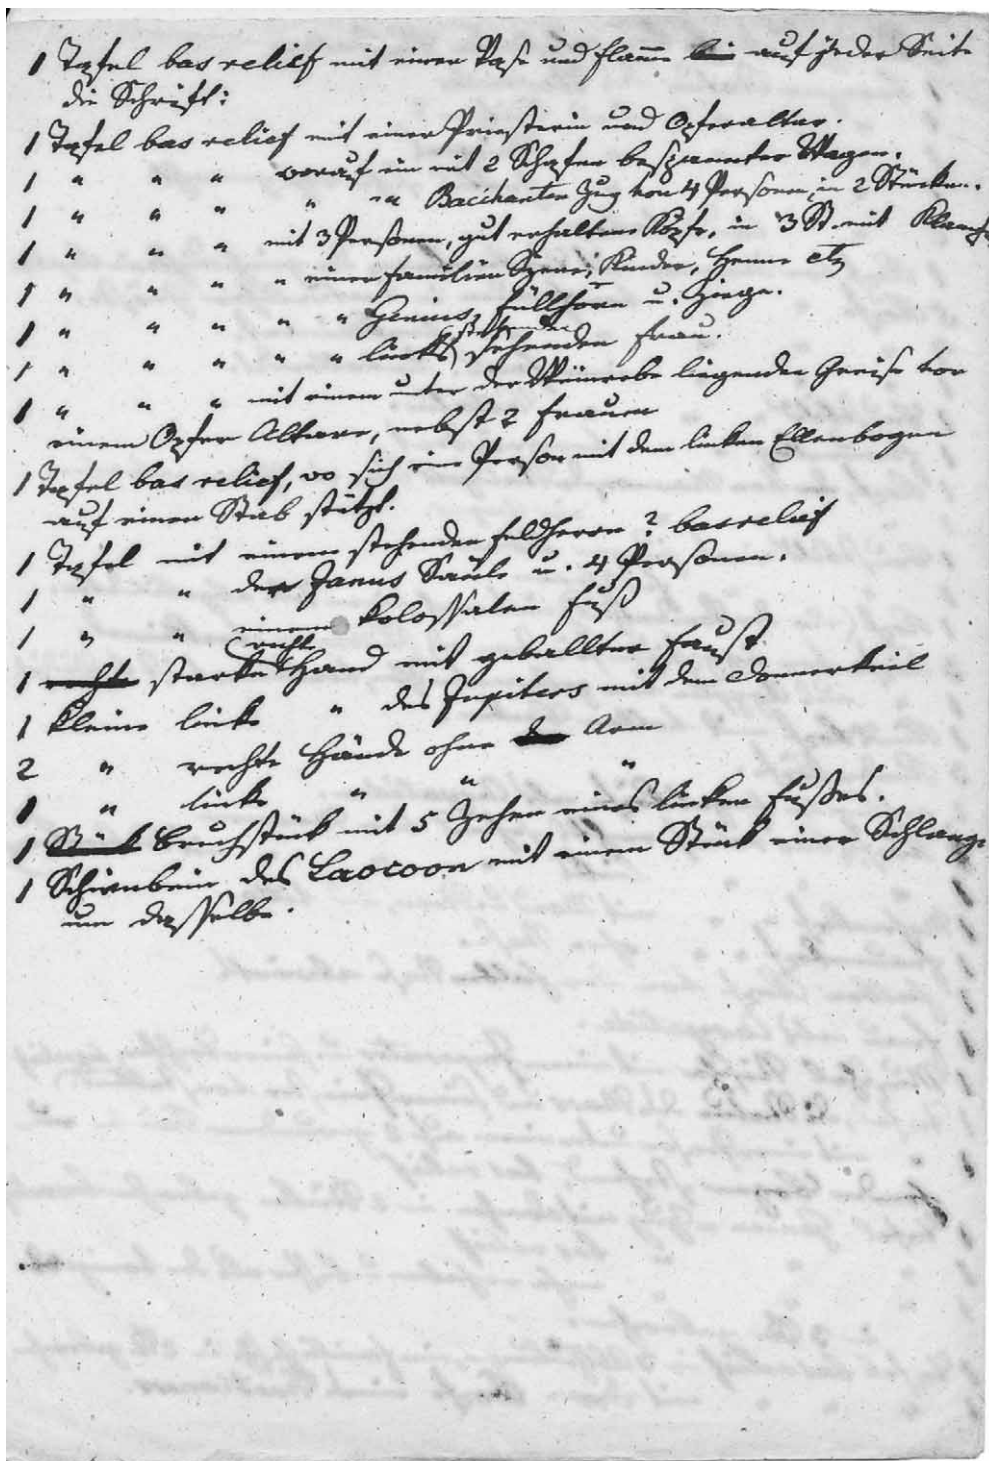 1 Tafel bas relief mit einer Vase und Flamme bei auf jeder Seite
die Schrift:
1 Tafel bas relief mit einer Priesterin und Opferaltar.
1 " " " worauf ein mit 2 Schafen bespannter Wagen.
1 " " " " " Bacchanten Zug von 4 Personen, in 2 Stücken.
1 " " " mit 3 Personen, gut erhaltene Köpfe, in 3 St. mit
1 " " " " einer Familien Szene, Kinder, Henne etc
1 " " " " " Genius, Füllhorn u. Ziege.
1 " " " " " links stehenden sehenden Frau.
1 " " " mit einem unter der Weinrebe liegenden Greise vor
einem Opfer Altare, nebst 2 Frauen
1 Tafel bas relief, wo sich eine Person mit dem linken Ellenbogen
auf einen Stab stützt.
1 Tafel mit einem stehenden Feldherrn ? bas relief
1 " " der Janus Säule u. 4 Personen.
1 " " einem kolossalen Fuß
1 rechte starke rechte Hand mit geballter Faust
1 kleine linke " des Jupiters mit dem Donnerkeil
2 " rechte Hände ohne Arm
1 " linke " " "
1 Stück Bruchstück mit 5 Zehen eines linken Fußes.
1 Schienbein des Laocoon mit einem Stück einer Schlange
um dasselbe.